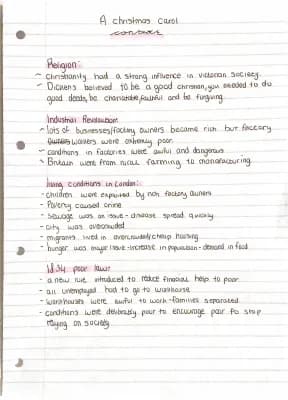 A christmas carol
context
Religion:
~ Christianity had a strong influence in victorian society.
~ Dickens believed to be a good christian, you needed to do
good deeds, be charitable, faithful and be forgiving.
Industrial Revolution:
~ lots of businesses/factory owners became rich but factory
owners workers were extremely poor.
~ conditions in factories were awful and dangerous
~ Britain went from rural farming to manufacturing.
living conditions in London:
- children were exploited by rich factory owners
- Poverty caused crime
- Sewage was an issue - disease spread quickly
- city was overcrowded
- migrants lived in overcrowded/cheap housing
- hunger was major issue - increase in population - demand in food
1834 poor law:
- a new rule introduced to reduce financial help to poor
- all unemployed had to go to workhouse
- workhouses were awful to work - families separated
- conditions were deliberately poor to encourage poor to stop
relying on society